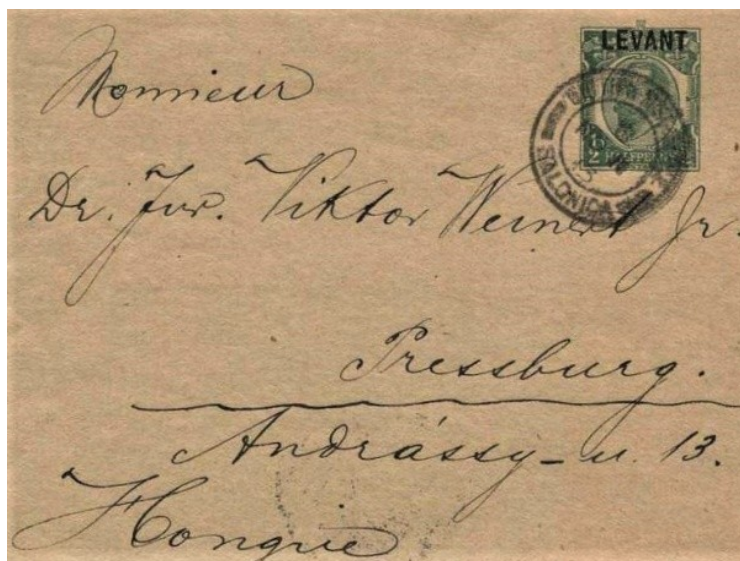 LEVANT
HALFPENNY
SALONICA
Monsieur
Dr. Jur. Viktor Weinert Jr.
Pressburg.
Andrássy-u. 13.
Hongrie